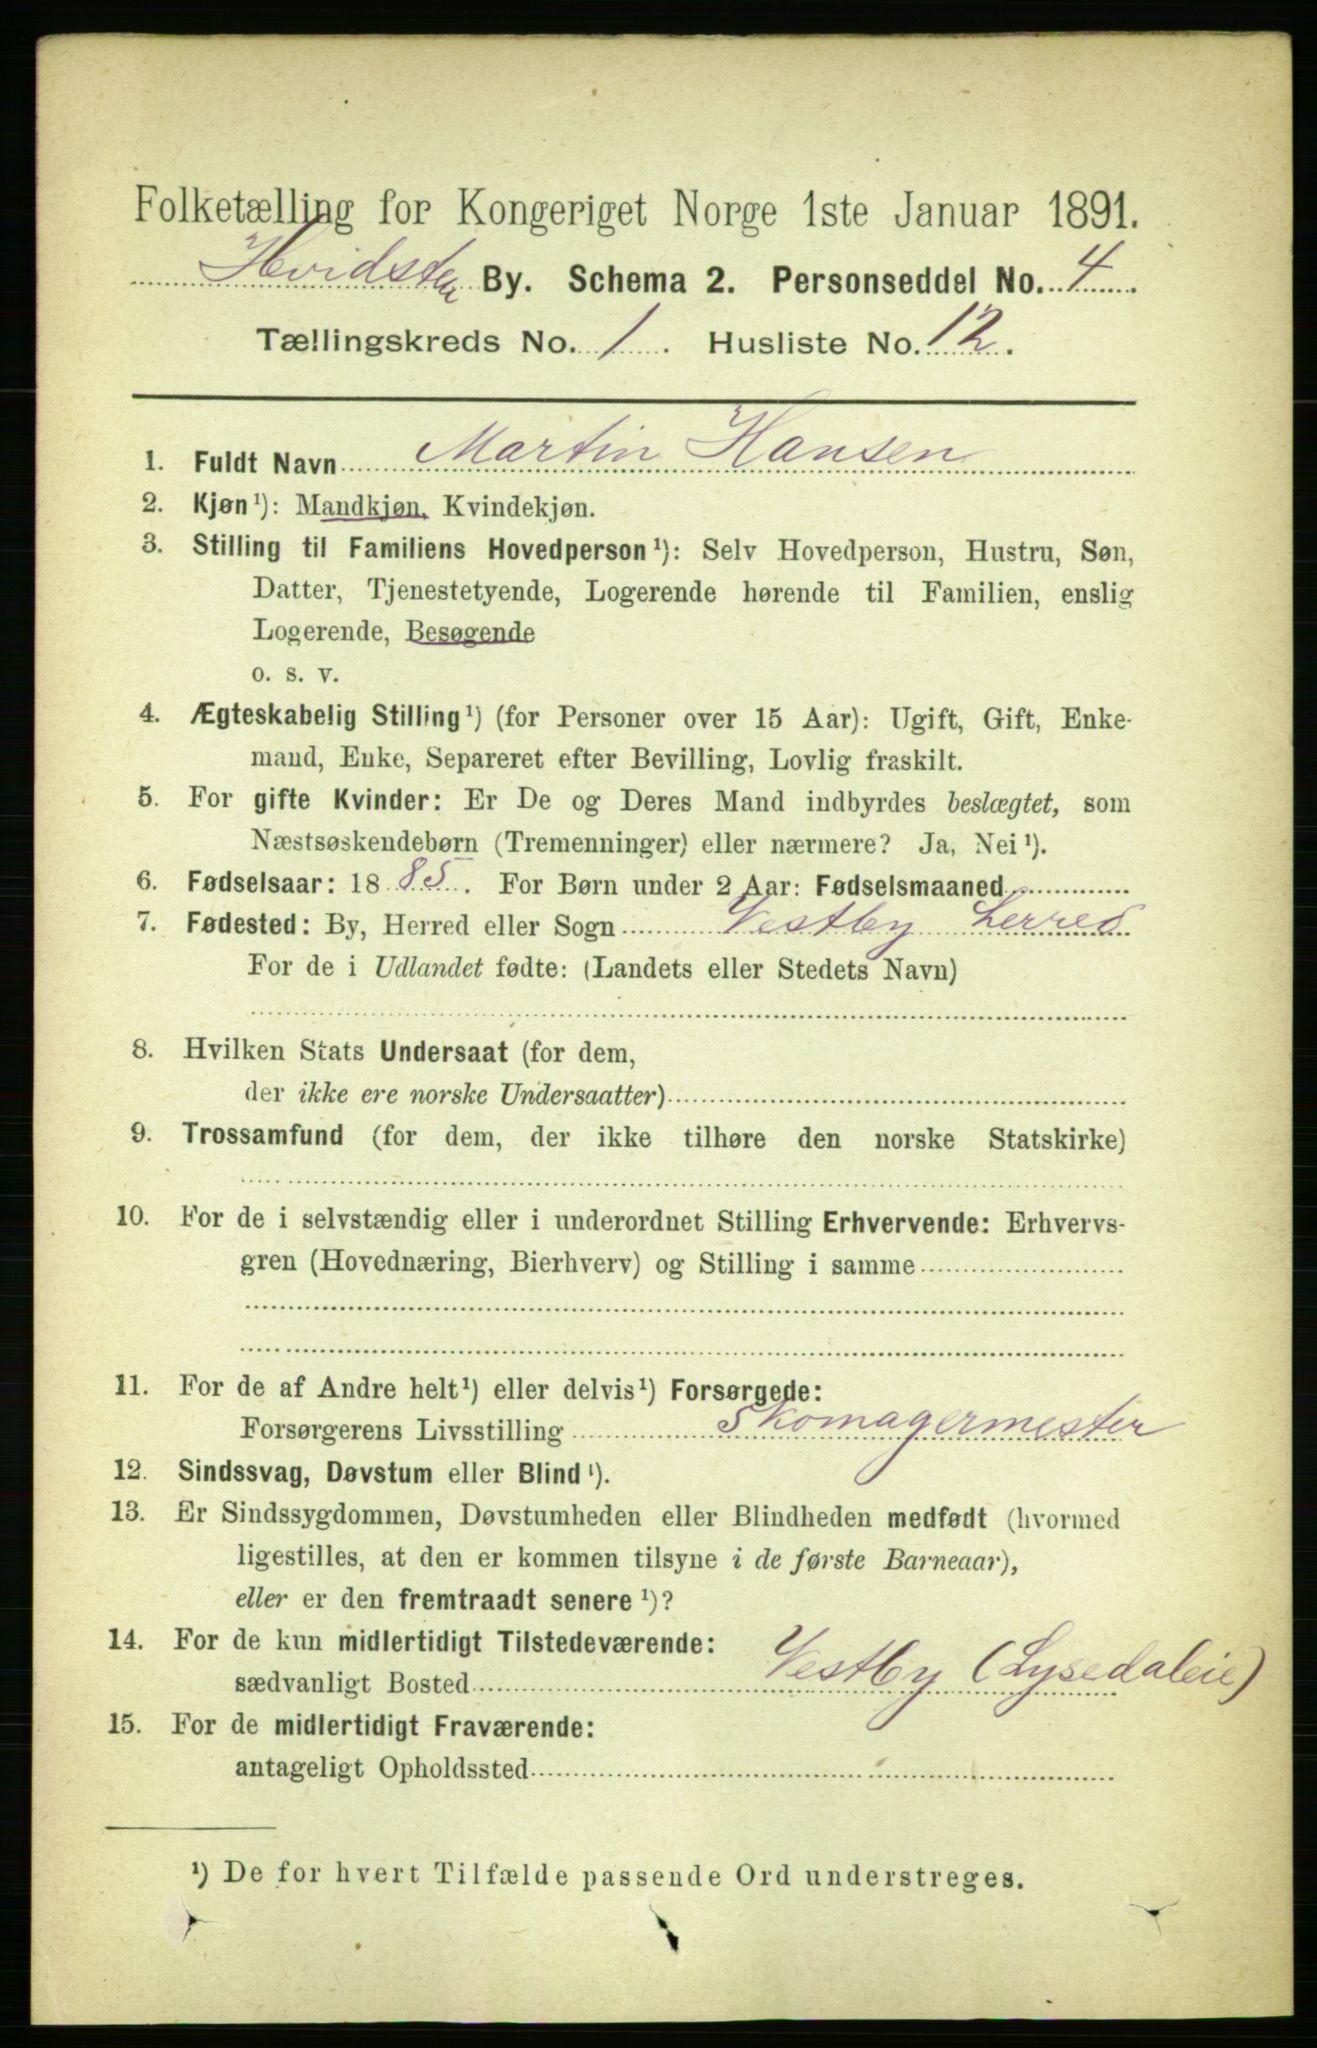 Folketælling for Kongeriget Norge 1ste Januar 1891.
Hvidsten By. Schema 2. Personseddel No. 4
Tællingskreds No. 1. Husliste No. 12.
1. Fuldt Navn Martin Hansen
2. Kjøn¹): Mandkjøn, Kvindekjøn.
3. Stilling til Familiens Hovedperson¹): Selv Hovedperson, Hustru, Søn,
Datter, Tjenestetyende, Logerende hørende til Familien, enslig
Logerende, Besøgende
o. s. v.
4. Ægteskabelig Stilling¹) (for Personer over 15 Aar): Ugift, Gift, Enke-
mand, Enke, Separeret efter Bevilling, Lovlig fraskilt.
5. For gifte Kvinder: Er De og Deres Mand indbyrdes beslægtet, som
Næstsøskendebørn (Tremenninger) eller nærmere? Ja, Nei¹).
6. Fødselsaar: 1885. For Børn under 2 Aar: Fødselsmaaned
7. Fødested: By, Herred eller Sogn Vestby Herred
For de i Udlandet fødte: (Landets eller Stedets Navn)
8. Hvilken Stats Undersaat (for dem,
der ikke ere norske Undersaatter)
9. Trossamfund (for dem, der ikke tilhøre den norske Statskirke)
10. For de i selvstændig eller i underordnet Stilling Erhvervende: Erhvervs-
gren (Hovednæring, Bierhverv) og Stilling i samme
11. For de af Andre helt¹) eller delvis¹) Forsørgede:
Forsørgerens Livsstilling Skomagermester
12. Sindssvag, Døvstum eller Blind¹).
13. Er Sindssygdommen, Døvstumheden eller Blindheden medfødt (hvormed
ligestilles, at den er kommen tilsyne i de første Barneaar),
eller er den fremtraadt senere¹)?
14. For de kun midlertidigt Tilstedeværende:
sædvanligt Bosted Vestby (Lysedaleie)
15. For de midlertidigt Fraværende:
antageligt Opholdssted
¹) De for hvert Tilfælde passende Ord understreges.